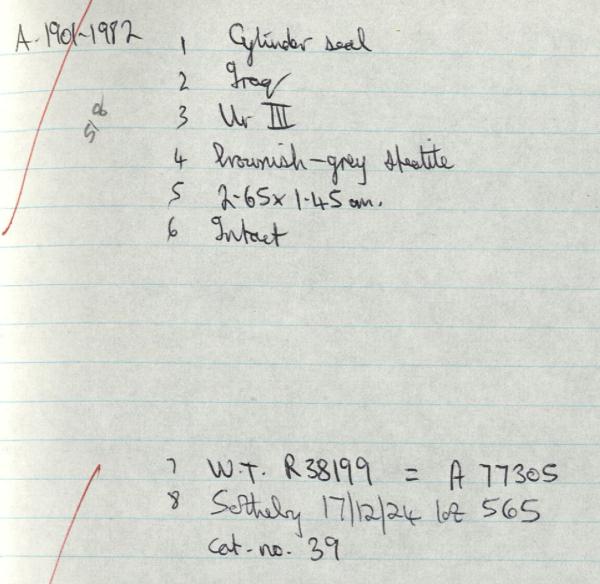 A. 1901-1982 1 Cylinder seal
2 Iraq
3 Ur III
4 Brownish-grey steatite
5 2.65 x 1.45 cm.
6 Intact
7 W.T. R38199 = A 77305
8 Sotheby 17/12/24 lot 565
cat-no. 39